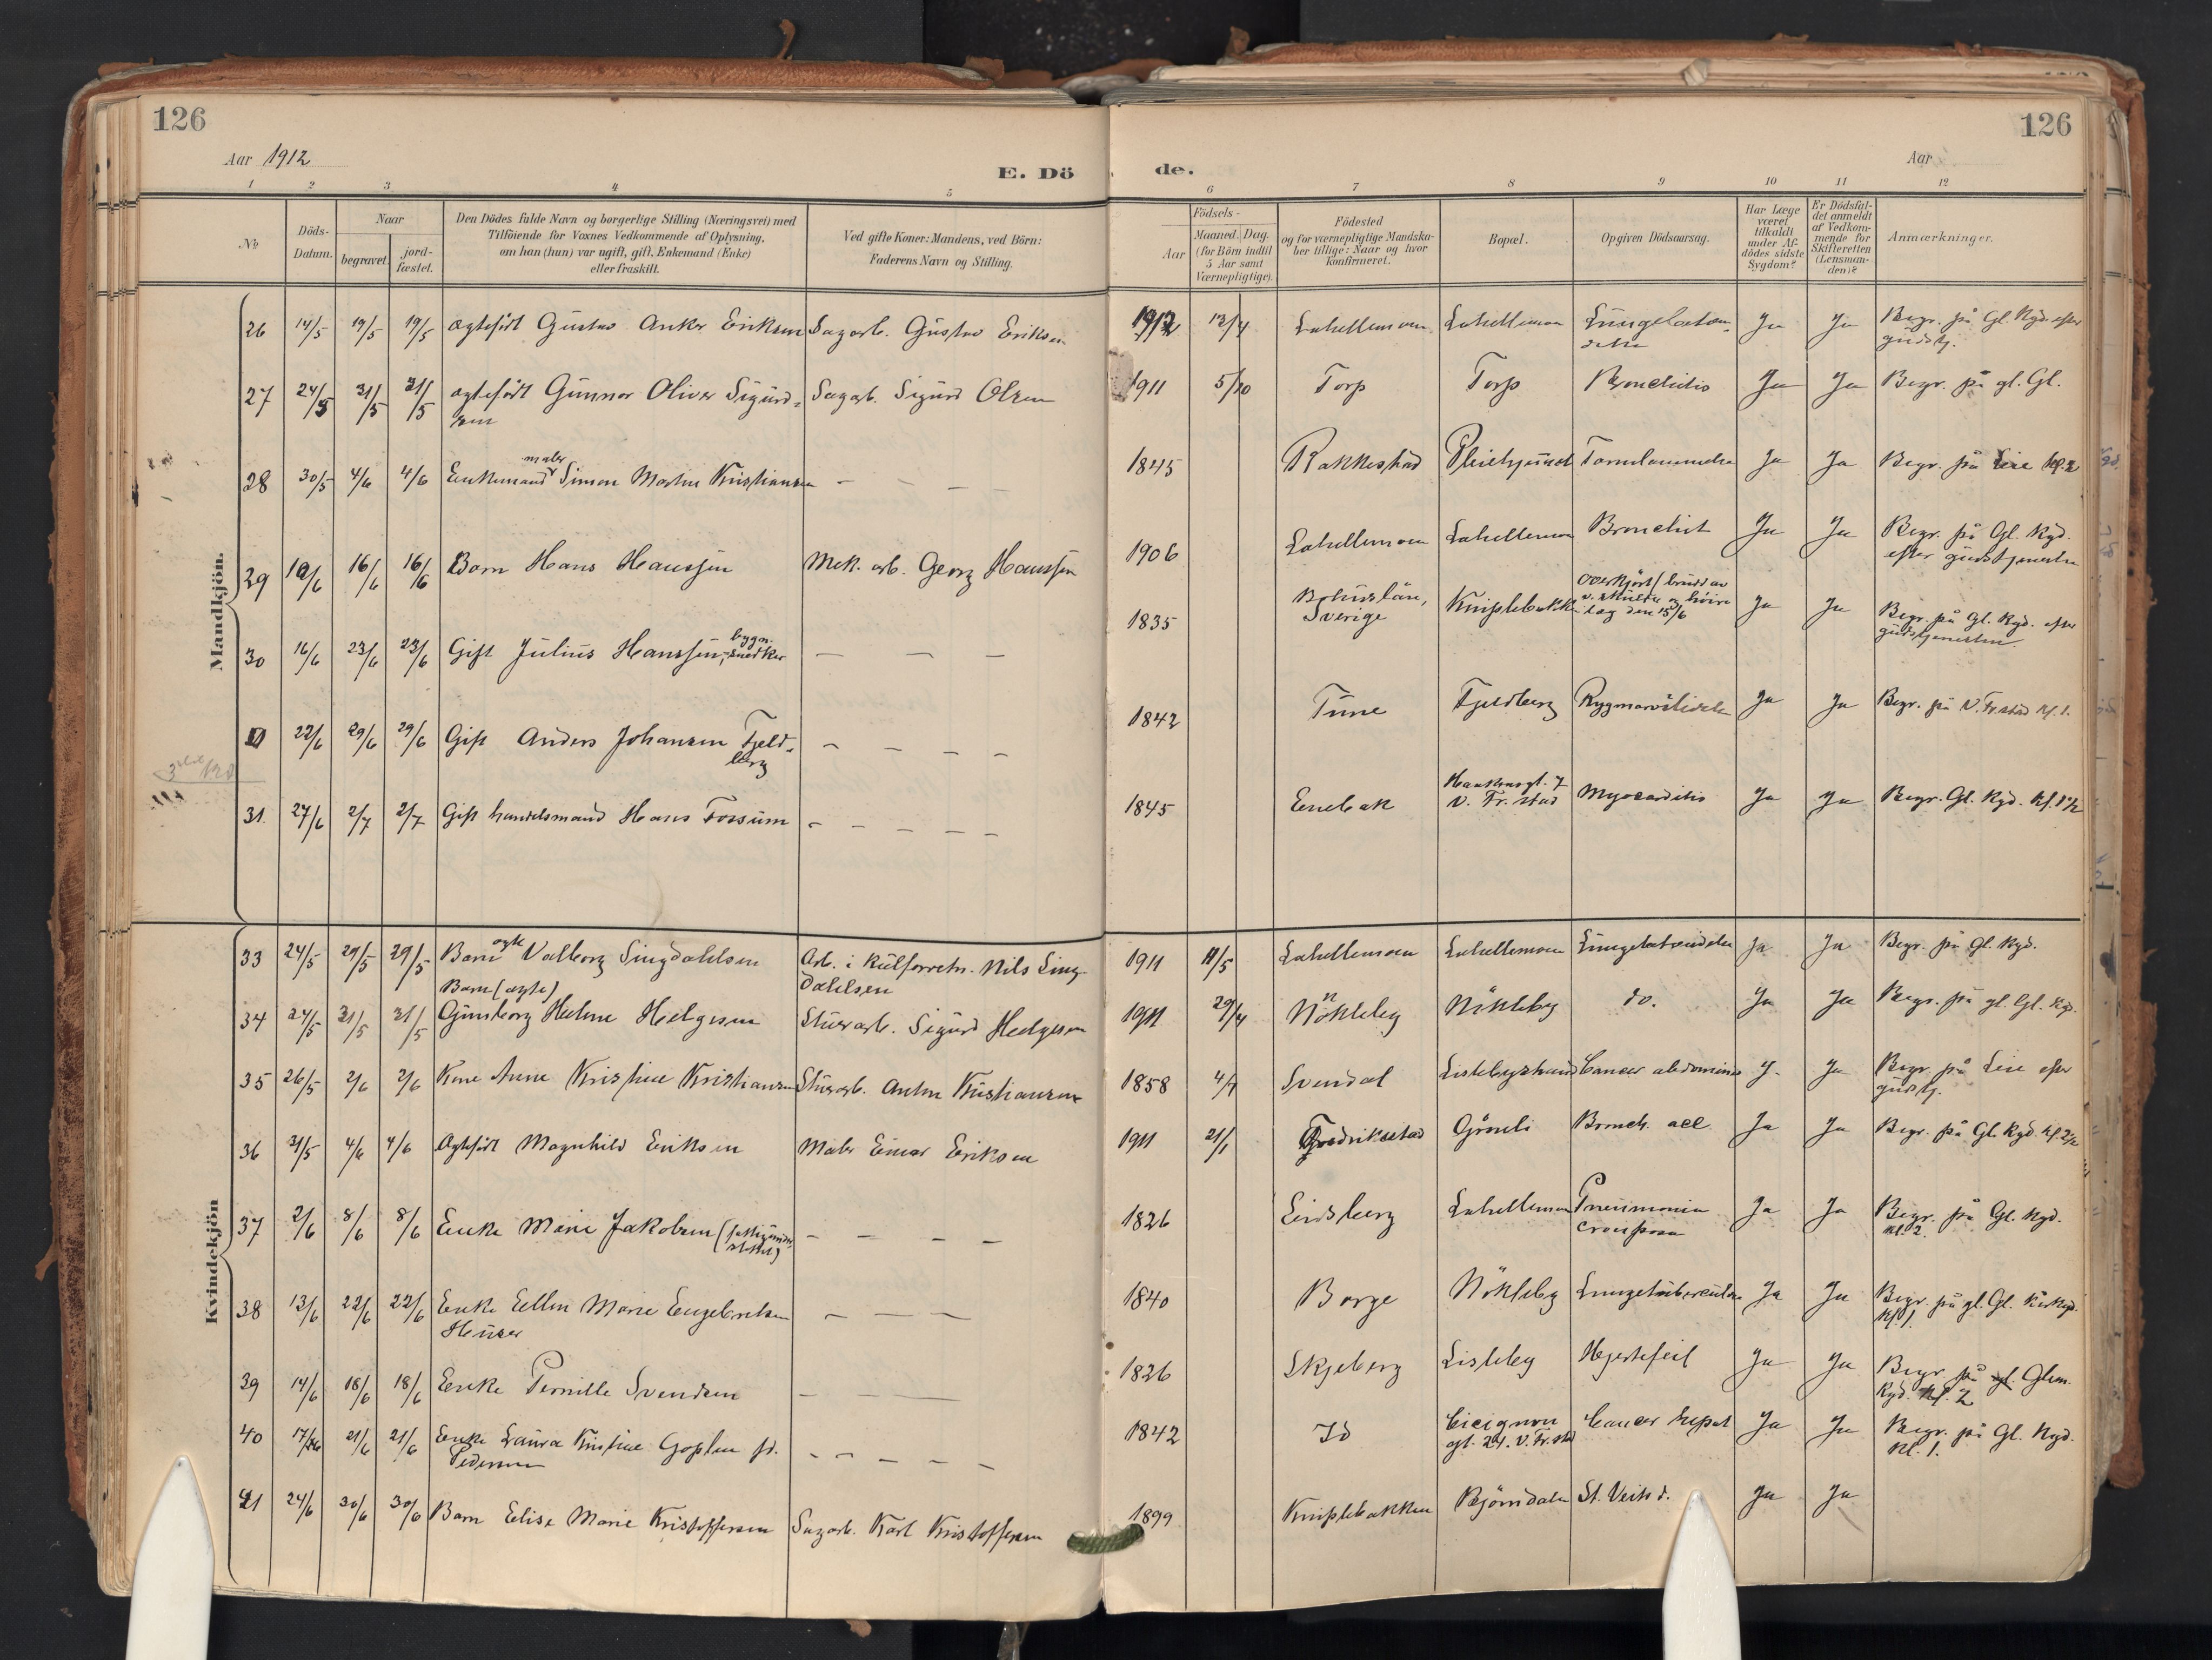 126
126
Aar 1912
Aar
E. Dö
de.
1 2 3 4 5
6 7 8 9 10 11 12
No
Döds-
Datum.
Naar
begravet.
jord-
fæstet.
Den Dödes fulde Navn og borgerlige Stilling (Næringsvei) med
Tilföiende for Voxnes Vedkommende af Oplysning,
om han (hun) var ugift, gift, Enkemand (Enke)
eller fraskilt.
Ved gifte Koner: Mandens, ved Börn:
Faderens Navn og Stilling.
Födsels-
Aar
Maaned. Dag.
(for Börn indtil
5 Aar samt
Værnepligtige).
Födested
og for værnepligtige Mandska-
ber tillige: Naar og hvor
konfirmeret.
Bopæl.
Opgiven Dödsaarsag.
Har Læge
været
tilkaldt
under Af-
dödes sidste
Sygdom?
Er Dödsfal-
det anmeldt
af Vedkom-
mende for
Skifteretten
(Lensman-
den)?
Anmærkninger.
Mandkjön.
26 14/5 19/5 19/5 ægteført Gustav Anker Eriksen Sagarb. Gustav Eriksen 1912 13/4 Lahellemoen Lahellemoen Lungebetæn-
delse Ja Ja Begr. på Gl. Kgd. efter
gudstj.
27 24/5 31/5 31/5 ægteført Gunnar Oliver Sigurd-
sen Sagarb. Sigurd Olsen 1911 5/10 Torp Torp Bronchitis Ja Ja Begr. på gl. Gl.
maler
28 30/5 4/6 4/6 Enkemand Simon Martin Kristiansen - - - - 1845 Rakkestad Pleiehjemmet Ja Ja Begr. på Leie kl. 2
29 10/6 16/6 16/6 Barn Hans Hanssen Mek. arb. Georg Hanssen 1906 Lahellemoen Lahellemoen Bronchit Ja Ja Begr. på Gl. Kgd.
efter gudstjenesten
30 16/6 23/6 23/6 Gift Julius Hanssen, bygn.
snedker - - - 1835 Bohuslän,
Sverige Kniplebakken Overkjørt/ brudd av
v. skulder og høire
læg den 15/6 Ja Ja Begr. på Gl. Kgd. efter
gudstjenesten.
22/6 29/6 29/6 Gift Anders Johansen Fjeld-
berg - - - - 1842 Tune Fjeldberg Rygmarvslidelse Ja Ja Begr. på V. Fr.stad kl. 1.
31. 27/6 2/7 2/7 Gift handelsmand Hans Fossum - - - - - 1845 Enebak 7
V. Fr. stad Myocarditis Ja Ja Begr. Gl. Kgd. kl. 1 1/2
Kvindekjön
33 24/5 29/5 29/5 Barn ægte Valborg Lingdahlsen Arb. i kulforretn. Nils Ling-
dahlsen 1911 11/5 Lahellemoen Lahellemoen Lungebetændelse Ja Ja Begr. på Gl. Kgd.
Barn (ægte)
34 24/5 31/5 31/5 Gunborg Helene Helgesen Stuerarb. Sigurd Helgesen 1911 29/4 Nökleby Nökleby do. Ja Ja Begr. på gl. Gl. Kgd.
35 26/5 2/6 2/6 Kone Anne Kristine Kristiansen Stuerarb. Anton Kristiansen 1858 4/7 Svendal Lislebystrand Cancer abdominis J. Ja Begr. på Leie efter
gudstj.
36 31/5 4/6 4/6 Ægteført Magnhild Eriksen Maler Einar Eriksen 1911 21/1 Fredrikstad Grönli Bronch. acc. Ja Ja Begr. på Gl. Kgd. kl. 2 1/2
37 2/6 8/6 8/6 Enke Marie Jakobsen (fattigunder-
støttet) - - - - 1826 Eidsberg Lahellemoen Pneumonia
crouposa Ja Ja Begr. på Gl. Kgd.
kl. 2.
38 13/6 22/6 22/6 Enke Ellen Marie Engebretsen
- - - 1840 Borge Nökleby Lungetuberculose Ja Ja Begr. på gl. Gl. Kirkegd.
kl. 1.
39 14/6 18/6 18/6 Enke Pernille Svendsen - - - 1826 Skjeberg Lisleby Hjertefeil Ja Ja Begr. på gl. Glem.
Kgd. kl. 2
40 17/6 21/6 21/6 Enke Laura Kristine Goplen fd.
Pedersen - - - - - 1842 Id Cicignon
gt. 24. V. Fr.stad Cancer hepat Ja Ja Begr. på Gl. Kgd.
kl. 1.
41 24/6 30/6 30/6 Barn Elise Marie Kristoffersen Sagarb. Karl Kristoffersen 1899 Kniplebakken Bjørndalen St. Veitsd. Ja Ja